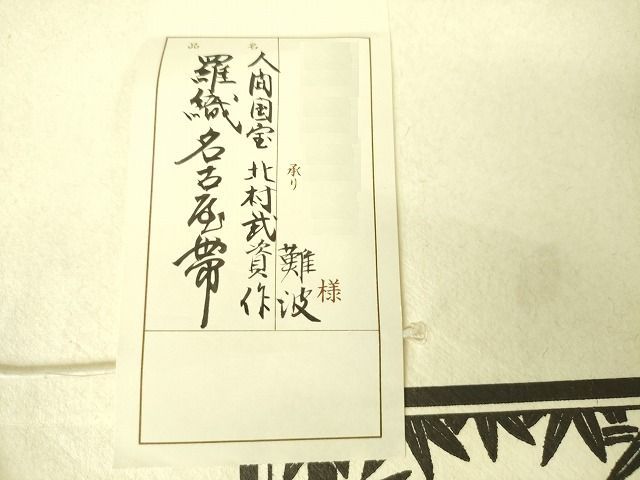 様
承り 難波
品名
人間国宝 北村武資作
羅織名古屋帯